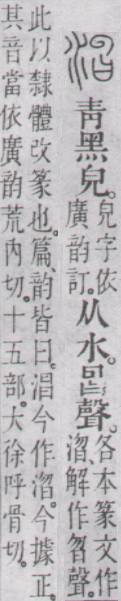 青黑皃。
皃字依
廣韵訂。
从水。聲。
各本篆文作
解作曶聲。
此以隸體改篆也。篇、韵皆曰。今作。今據正。
其音當依廣韵荒內切。十五部。大徐呼骨切。